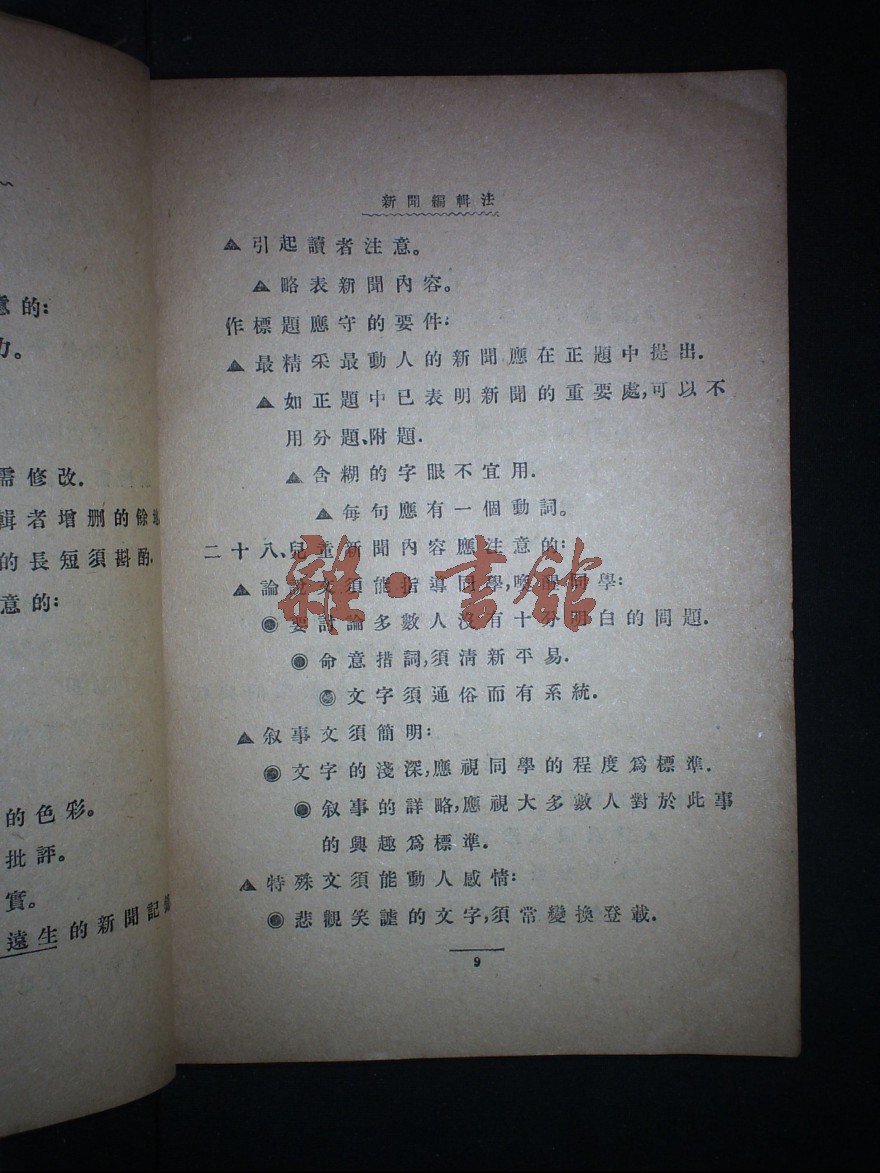 意的：
力。
需修改．
輯者增删的餘地
的長短須斟酌．
意的：
的色彩。
批評。
實。
遠生的新聞記
新聞編輯法
▲引起讀者注意。
▲略表新聞內容。
作標題應守的要件：
▲最精采最動人的新聞應在正題中提出．
▲如正題中已表明新聞的重要處，可以不
用分題、附題．
▲含糊的字眼不宜用．
▲每句應有一個動詞。
二十八、兒童新聞內容應注意的：
▲論說文須能指導同學，喚醒同學：
◉要討論多數人沒有十分明白的問題．
◉命意措詞，須清新平易．
◉文字須通俗而有系統．
▲叙事文須簡明：
◉文字的淺深，應視同學的程度爲標準．
◉叙事的詳略，應視大多數人對於此事
的興趣爲標準．
▲特殊文須能動人感情：
◉悲觀笑謔的文字，須常變換登載．
9
雜·書館